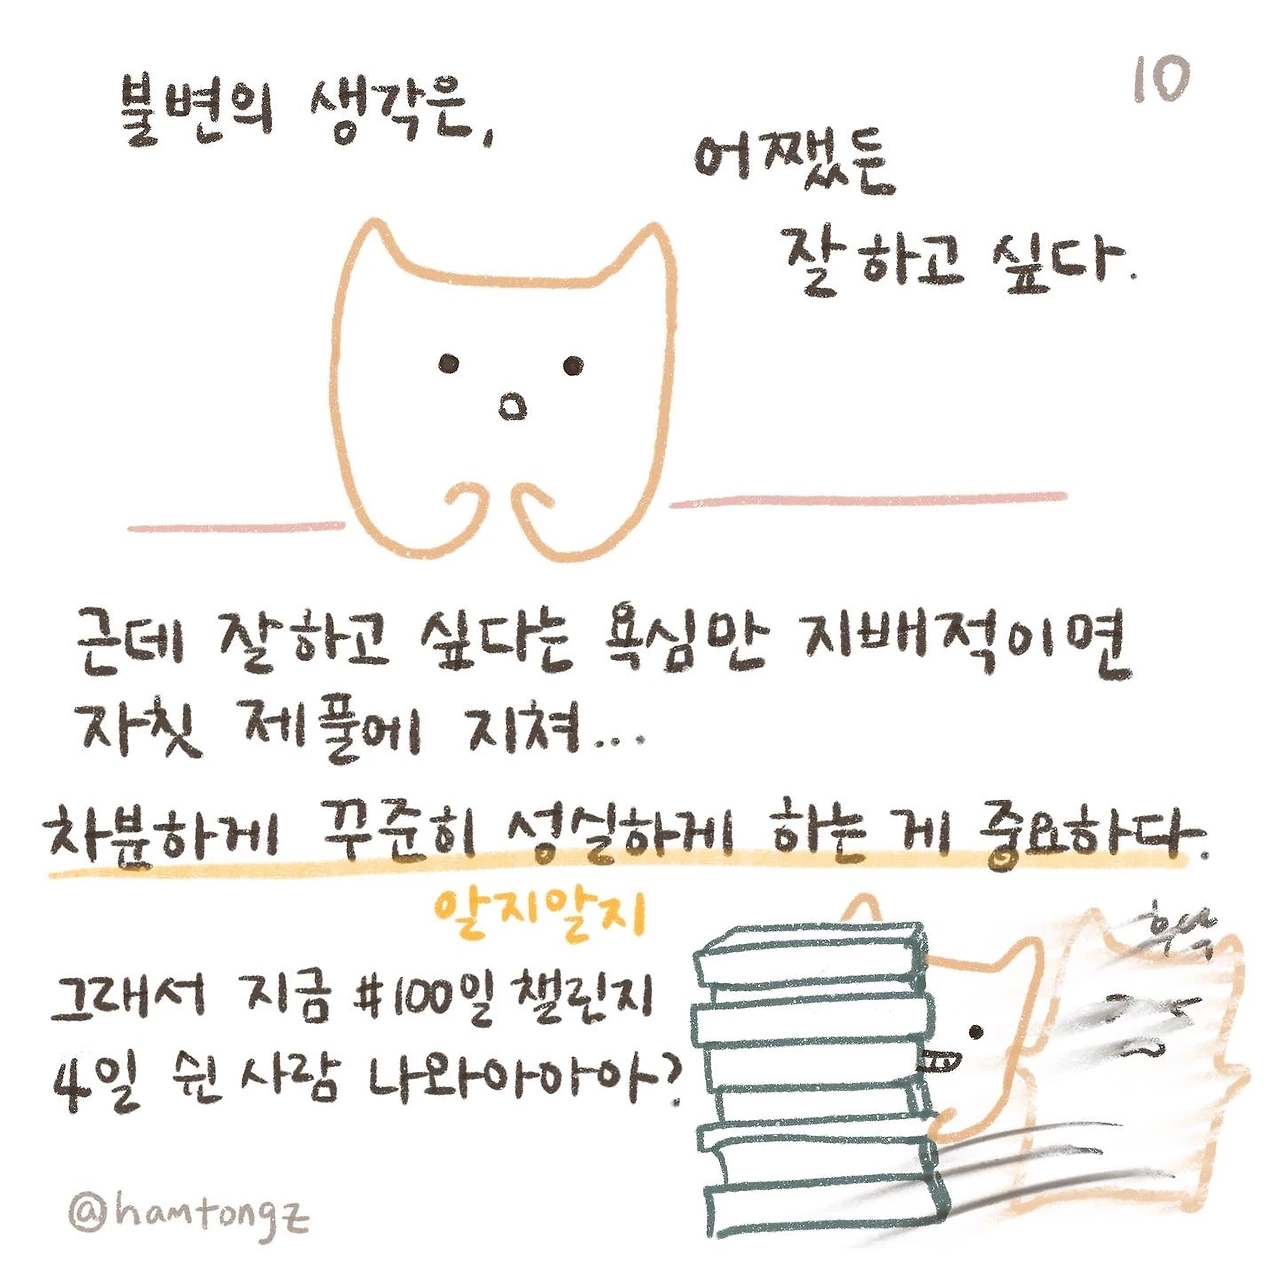 10
불변의 생각은,
어쨌든
잘하고 싶다.
근데 잘하고 싶다는 욕심만 지배적이면
자칫 제풀에 지쳐...
차분하게 꾸준히 성실하게 하는 게 중요하다.
알지알지
후삭
그래서 지금 #100일 챌린지
4일 쉰 사람 나와아아아?
@hamtongz